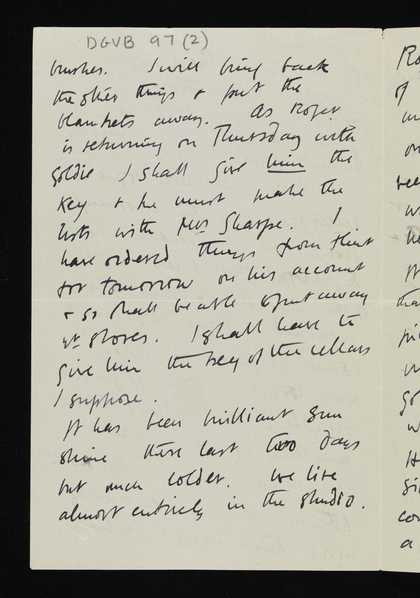 DGVB 97 (2)
brushes. I will bring back
the other things & put the
blankets away. As Roger
is returning on Thursday with
Goldie I shall give him the
key & he must make the
lists with Mrs Sharpe. I
have ordered things from Flint
for tomorrow on his account
& so shall be able to put away
yr stores. I shall have to
give him the key of the cellars
I suppose.
It has been brilliant sun
shine these last two days
but much colder. We live
almost entirely in the studio.
Ro
of
on
a